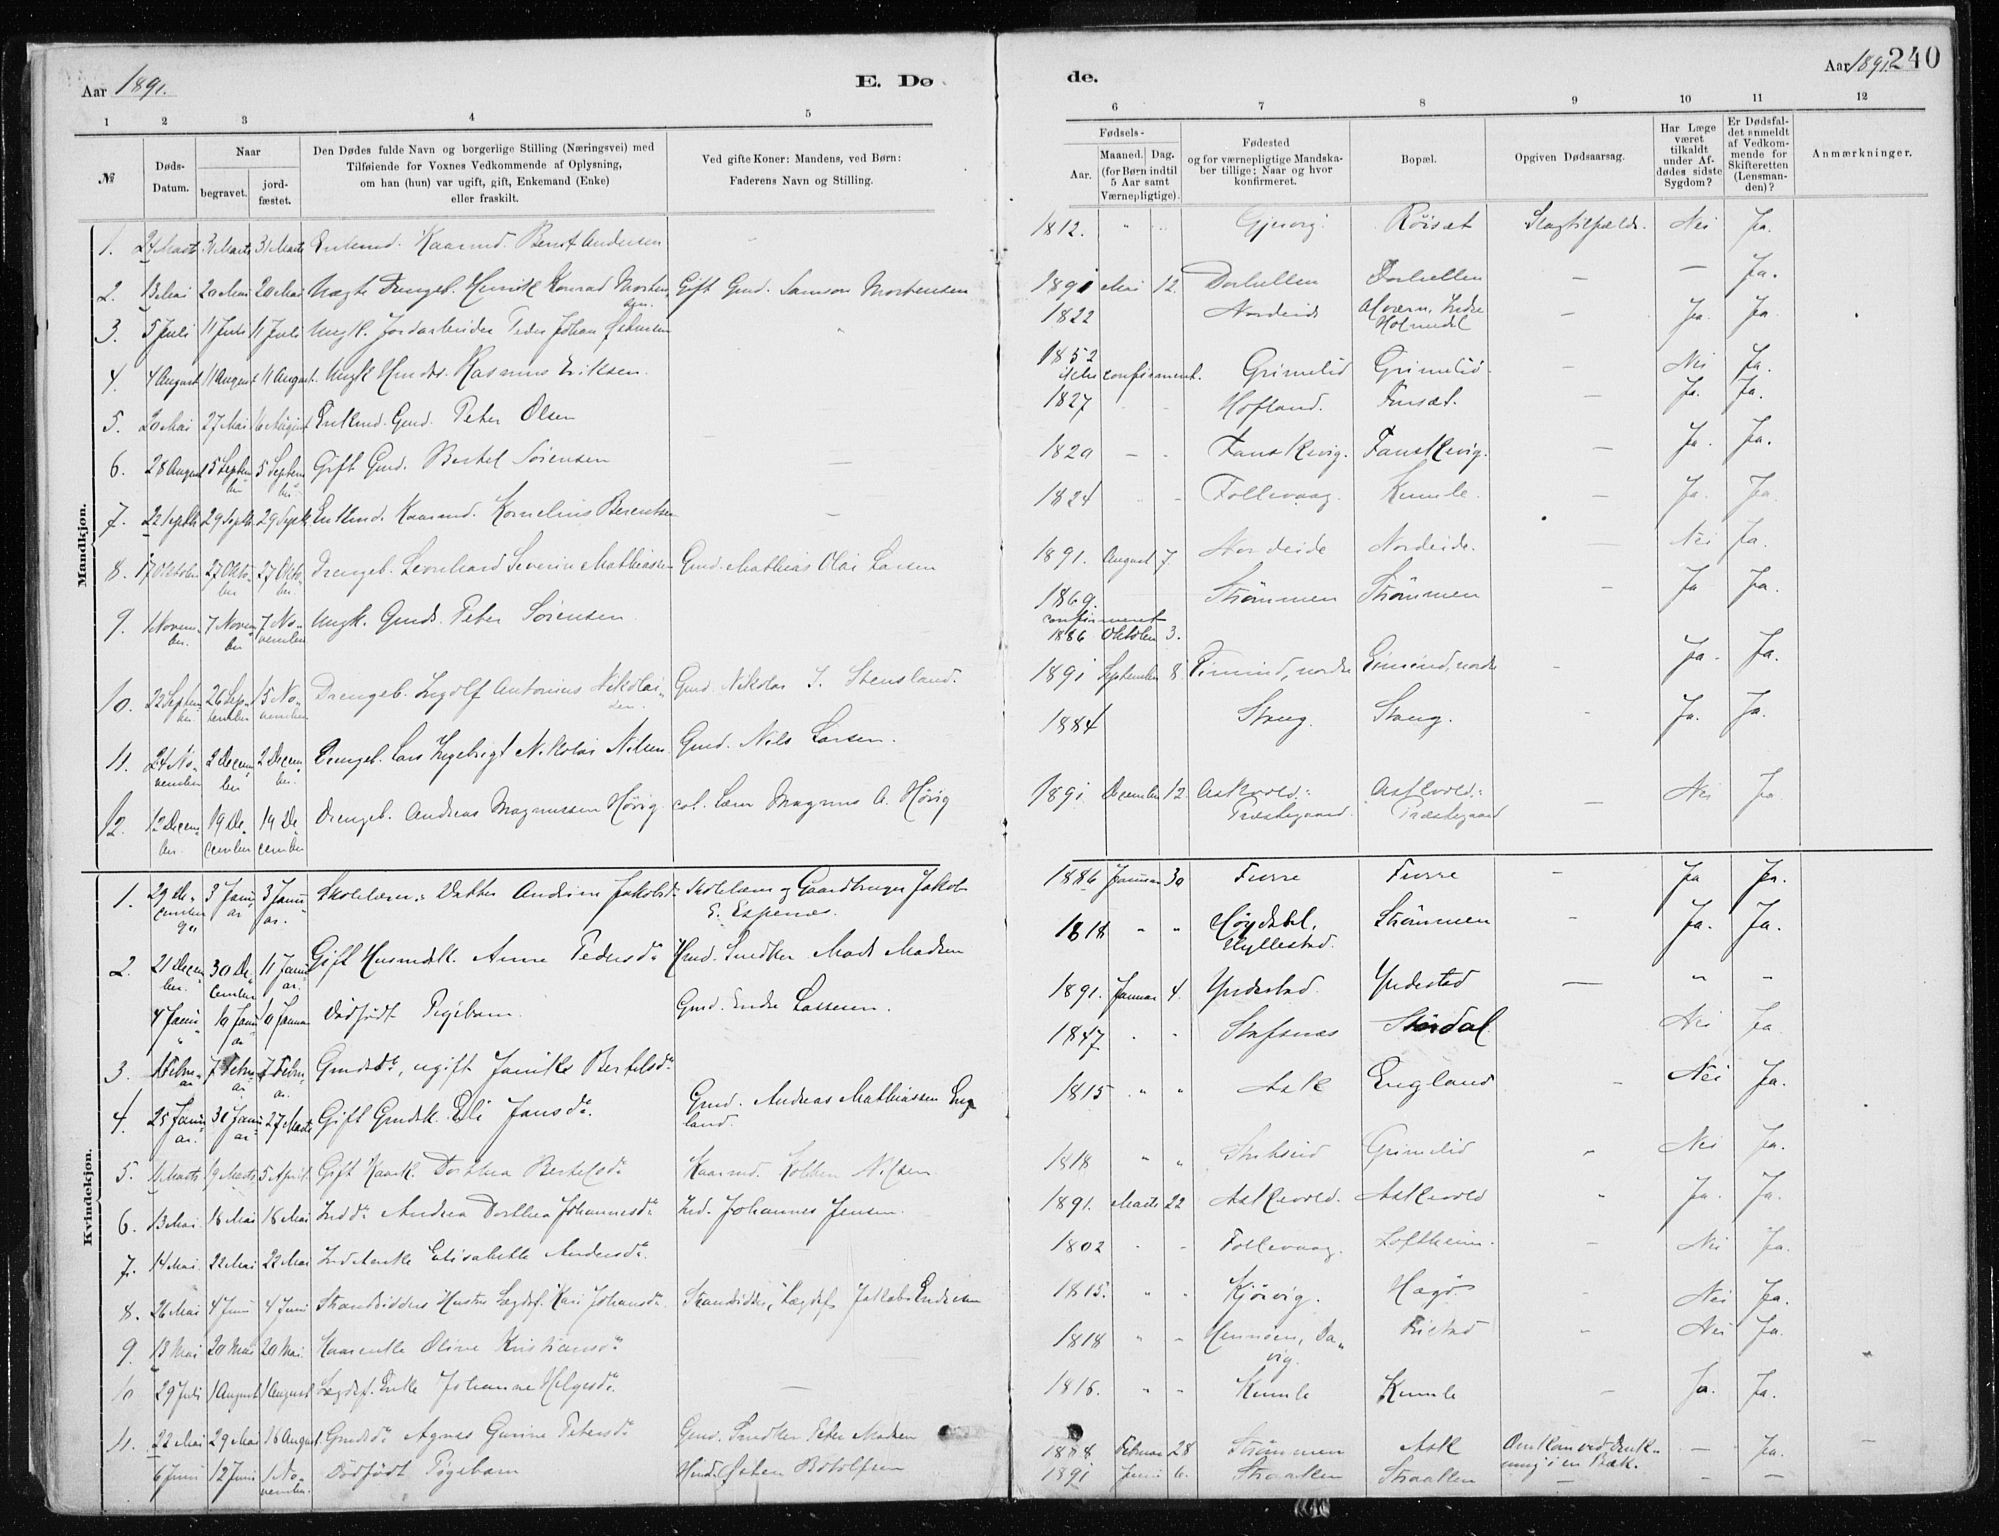 Aar 1891.
E. Dø
de.
Aar 1891. 240
1 2 3 4 5 6 7 8 9 10 11 12
№
Døds-Datum.
Naar
begravet.
jord-fæstet.
Den Dødes fulde Navn og borgerlige Stilling (Næringsvei) med
Tilføiende for Voxnes Vedkommende af Oplysning,
om han (hun) var ugift, gift, Enkemand (Enke)
eller fraskilt.
Ved gifte Koner: Mandens, ved Børn:
Faderens Navn og Stilling.
Fødsels-
Aar.
Maaned. Dag.
(for Børn indtil
5 Aar samt
Værnepligtige).
Fødested
og for værnepligtige Mandska-
ber tillige: Naar og hvor
konfirmeret.
Bopæl.
Opgiven Dødsaarsag.
Har Læge
været
tilkaldt
under Af-
dødes sidste
Sygdom?
Er Dødsfal-
det anmeldt
af Vedkom-
mende for
Skifteretten
(Lensman-
den)?
Anmærkninger.
Mandkjøn.
1. 24 Marts 31 Marts 31 Marts Enkemd. Kaarmd. Bernt Andersen 1812. Røisæt Slagtilfælde. Nei Ja.
2. 13 Mai 20 Mai 20 Mai Ægte Drengeb. Henrik Konrad Morten-sen. Gift Gmd. Samson Mortensen 1891 Mai 12. Dorhellen Dorhellen — — Ja.
3. 5 Juli 11 Juli 11 Juli Ungk. Jordarbeider Peder Johan 1822 Nordeide Indre Holmedal — Ja. Ja.
4. 4 August 11 August 11 August. Ungk. Rasmus Eriksen. 1852 ikke confirmeret. Grimelid Grimelid — Nei Ja.
5. 20 Mai 27 Mai 16 August Enkemd. Gmd. Peter Olsen 1827 Hofland. — Ja. Ja.
6. 28 August 5 Septem-ber 5 Septem-ber Gift Gmd. Bertel Sørensen — 1820 — — Fanskevig. Fanskevig. — Ja. Ja.
7. 22 Septbr 29 Septbr 29 Septbr. Enkemd. Kaarmd. Kornelius Berentsen — 1824 Follevaag. Kumle. — Ja. Ja.
8. 17 Oktober 27 Okto-ber 27 Okto-ber. Drengeb. Leonhard Severin Mathiassen Gmd. Mathias Olai Larsen 1891. August 7. Nordeide Nordeide. — Nei Ja.
9. 1 Novem-ber. 7 Novem-ber 7 No-vember Ungk. Gmds. Peter Sørensen 1869. confirmeret 1886 Oktober 3. Strømmen Strømmen Ja Ja.
10. 22 Septem-ber. 26 Sep-tember 15 No-vember Drengeb. Ingolf Antonius Nikolai-sen. Gmd. Nikolai J. Stensland. 1891 September 8. nordre nordre Ja. Ja.
11. 24 No-vember 2 Decem-ber 2 Decem-ber. Drengeb. Lars Ingebrigt Nikolai Nilsen. Gmd. Nils Larsen. 1884 Stang. Stang. Ja. Ja.
12. 12 Decem-ber. 19 De-cember 19 De-cember Drengeb. Andreas Magnussen Høvig Magnus A. Høvig 1891 December 12. Askvold: Præstegaard. Askvold: Præstegaard — Nei Ja
Kvindekjøn.
1. 29 De-cember 90 3 Janu-ar 3 Janu-ar. Skolelærer: Datter Andrine Jakobsd: Skolelærer og Gaardbruger Jakob E. Espenæs. 1886 Januar 30 Furre Furre — Ja Ja.
2. 21 Decem-ber. 30 De-cember 11 Janu-ar. Gift Husmdsk. Anne Pedersd: Hmd. Snedker Mads Madsen 1818 " " Høydahl, Hyllestad. Strømmen — Ja. Ja.
4 Janu- 10 Janu-ar 10 Januar Dødfødt Pigebarn. Gmd. Endre Lassesen. 1891. Januar 4. Yndestad. Yndestad — " -
3. Febru-ar. 7 Febru-ar. 7 Febru-ar. Gmdsd:, ugift Janike Bertelsd: 1847 Stafsnæs Stordal. Nei Ja
4. 25 Janu-ar. 30 Janu-ar 27 Marts Gift Gmdsk. Eli Jansd:. Gmd. Andreas Mathiassen Eng-land. 1815 " " Ask England Nei Ja.
5. Marts 9 Marts 5 April. Gift Kaark. Dorthea Bertelsd: Kaarmd. Nilsen 1818 " " Grimelid Nei Ja.
6. 13 Mai. 18 Mai 18 Mai Indd: Andrea Dorthea Johannesd: Ind. Johannes Jensen. 1891. Marts 22 Askevold. Askevold Ja. Ja.
7. 14 Mai. 22 Mai 22 Mai Ind.enke Elisabeth Andersd:. 1802 Follevaag. Loftheim. — Nei Ja.
8. 26 Mai 4 Juni 4 Juni Strandsidders Hustru Lægdsl. Kari Johansd: Strandsidder, Lægdsl. Jakob Endresen 1815. " " Kjørvig. Hægø Nei Ja.
9. 13 Mai 20 Mai 20 Mai. Kaarenke Oline Kristiansd: 1818 " " Nei Ja.
10 29 Juli 1 August 1 August Lægdsl. Enke Johanne Helgesd:. — 1816. " " Kumle Kumle — Ja. Ja.
11. 22 Mai 29 Mai 16 August Gmdsd: Agnes Gurine Petersd: Gmd. Snedker Peter Madsen 1888 Februar 28 Strømmen Ask Omkom ved Druk-ning i en Bæk. — Ja.
6 Juni 12 Juni 1 No-vember. Dødfødt Pigebarn Hmd. Botolfsen 1891 Juni 6. Straaten Straaten — — —